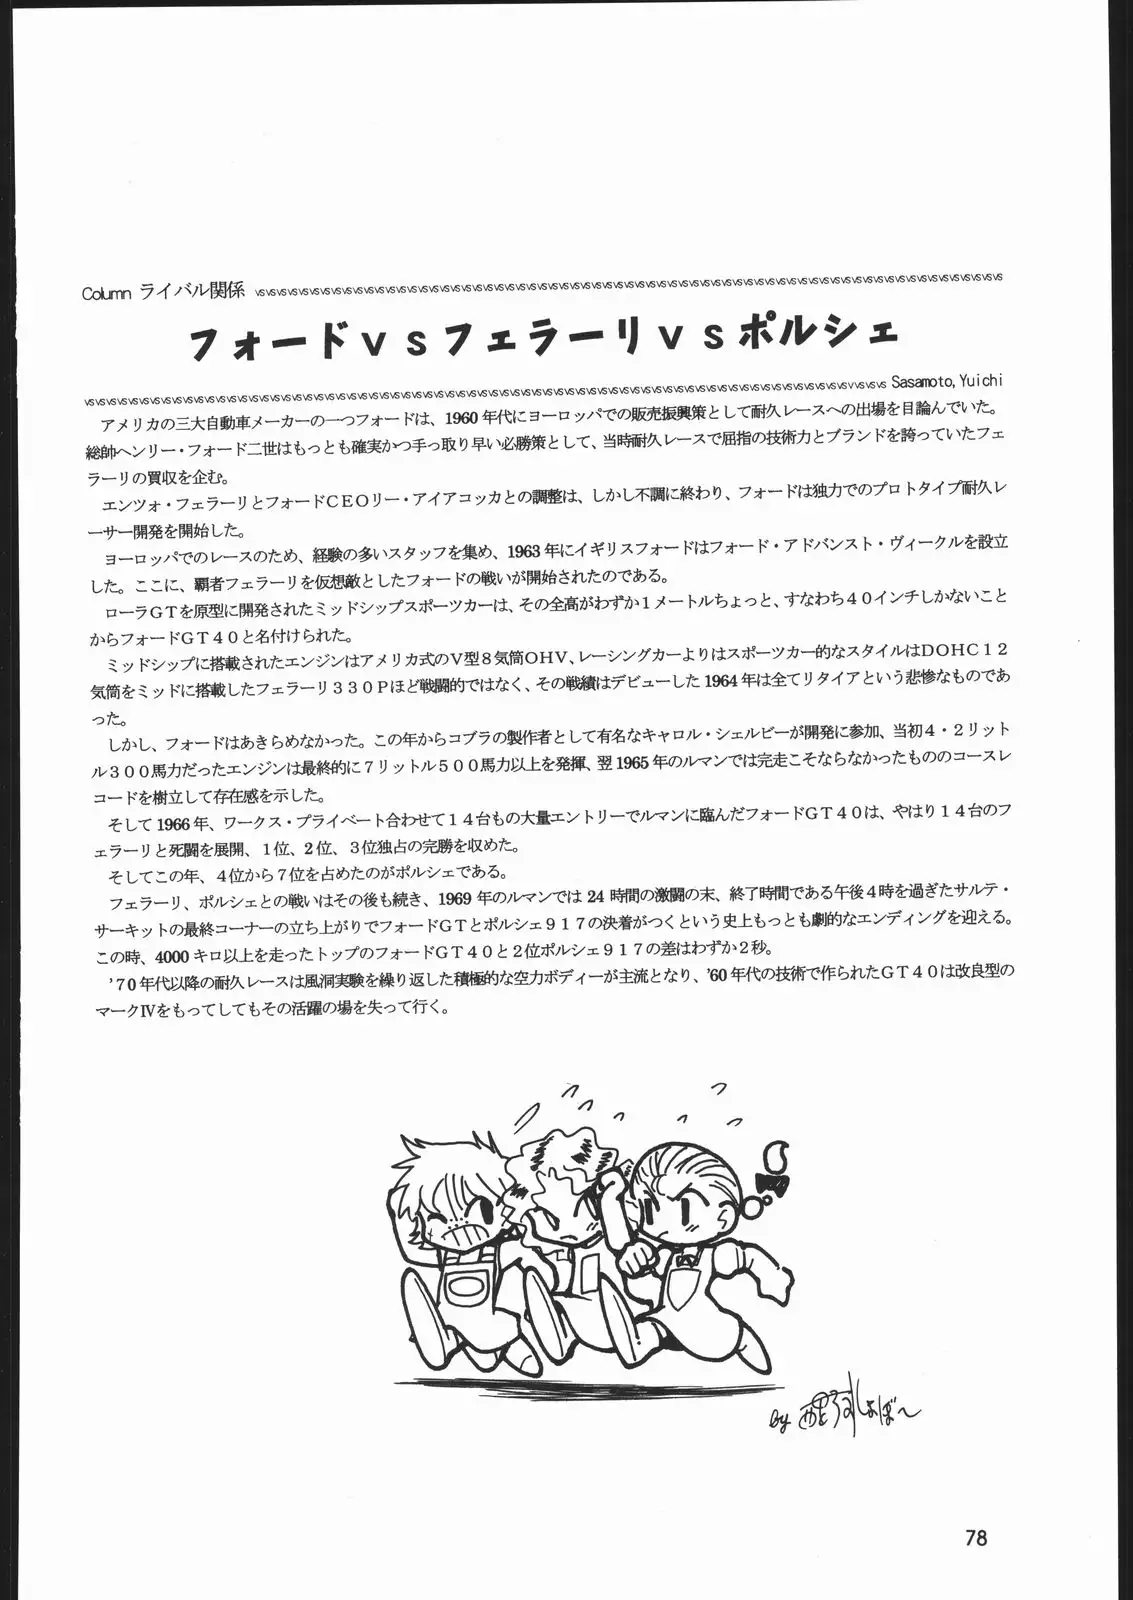 Column ライバル関係 vsvsvsvsvsvsvsvsvsvsvsvsvsvsvsvsvsvsvsvsvsvsvsvsvsvsvsvsvsvsvsvsvsvsvsvsvsvsvsvsvsvsvsvsvsvsvsvsvsvsvsvsvsvsvsvsvsvsvsvsvsvs
フォードｖｓフェラーリｖｓポルシェ
vsvsvsvsvsvsvsvsvsvsvsvsvsvsvsvsvsvsvsvsvsvsvsvsvsvsvsvsvsvsvsvsvsvsvsvsvsvsvsvsvsvsvsvsvsvsvsvsvsvsvsvsvsvsvsvsvsvsvsvsvsvsvsvsvsvsvsvsvvsvsvs Sasamoto,Yuichi
アメリカの三大自動車メーカーの一つフォードは、1960年代にヨーロッパでの販売振興策として耐久レースへの出場を目論んでいた。
総帥ヘンリー・フォード二世はもっとも確実かつ手っ取り早い必勝策として、当時耐久レースで屈指の技術力とブランドを誇っていたフェ
ラーリの買収を企む。
エンツォ・フェラーリとフォードＣＥＯリー・アイアコッカとの調整は、しかし不調に終わり、フォードは独力でのプロトタイプ耐久レ
ーサー開発を開始した。
ヨーロッパでのレースのため、経験の多いスタッフを集め、1963年にイギリスフォードはフォード・アドバンスト・ヴィークルを設立
した。ここに、覇者フェラーリを仮想敵としたフォードの戦いが開始されたのである。
ローラＧＴを原型に開発されたミッドシップスポーツカーは、その全高がわずか１メートルちょっと、すなわち４０インチしかないこと
からフォードＧＴ４０と名付けられた。
ミッドシップに搭載されたエンジンはアメリカ式のＶ型８気筒ＯＨＶ、レーシングカーよりはスポーツカー的なスタイルはＤＯＨＣ１２
気筒をミッドに搭載したフェラーリ３３０Ｐほど戦闘的ではなく、その戦績はデビューした1964年は全てリタイアという悲惨なものであ
った。
しかし、フォードはあきらめなかった。この年からコブラの製作者として有名なキャロル・シェルビーが開発に参加、当初４・２リット
ル３００馬力だったエンジンは最終的に７リットル５００馬力以上を発揮、翌1965年のルマンでは完走こそならなかったもののコースレ
コードを樹立して存在感を示した。
そして1966年、ワークス・プライベート合わせて１４台もの大量エントリーでルマンに臨んだフォードＧＴ４０は、やはり１４台のフ
ェラーリと死闘を展開、１位、２位、３位独占の完勝を収めた。
そしてこの年、４位から７位を占めたのがポルシェである。
フェラーリ、ポルシェとの戦いはその後も続き、1969年のルマンでは24時間の激闘の末、終了時間である午後４時を過ぎたサルテ・
サーキットの最終コーナーの立ち上がりでフォードＧＴとポルシェ９１７の決着がつくという史上もっとも劇的なエンディングを迎える。
この時、4000キロ以上を走ったトップのフォードＧＴ４０と２位ポルシェ９１７の差はわずか２秒。
'７０年代以降の耐久レースは風洞実験を繰り返した積極的な空力ボディーが主流となり、'60年代の技術で作られたＧＴ４０は改良型の
マークⅣをもってしてもその活躍の場を失って行く。
by
78